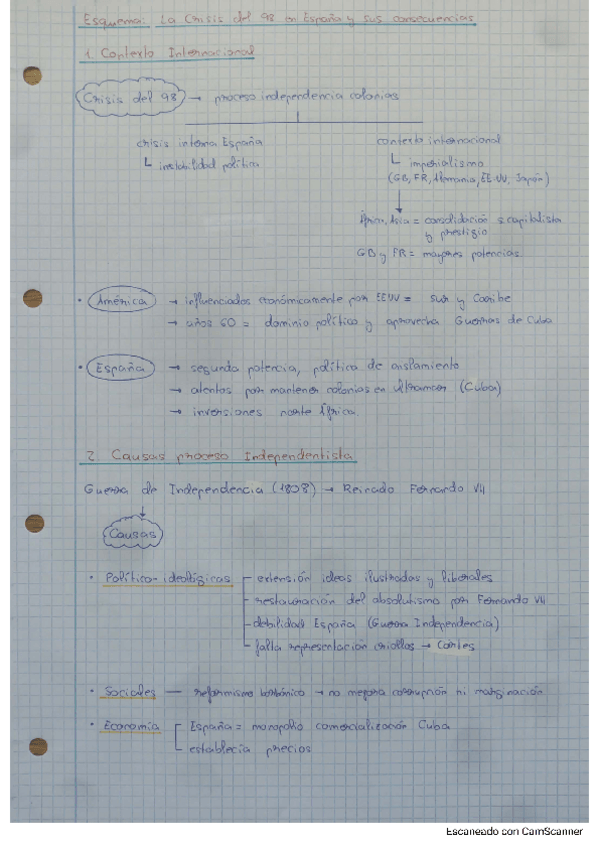 Esquema: La Crisis del 98 en España y sus consecuencias
1. Contexto Internacional
Crisis del 98 → proceso independencia colonias
crisis interna España
contexto internacional
↳ inestabilidad política
↳ imperialismo
(GB, FR, Alemania, EE.UU, Japón)
África, Asia = consolidación s. capitalista
y prestigio
GB y FR = mayores potencias
• América → influenciados económicamente por EEUU = sur y Caribe
→ años 60 = dominio político y aprovecha Guerras de Cuba
• España → segunda potencia, política de aislamiento
→ atentos por mantener colonias en Ultramar (Cuba)
→ inversiones norte África
2. Causas proceso Independentista
Guerra de Independencia (1808) → Reinado Fernando VII
Causas
• Político-ideológicas - extensión ideas ilustradas y liberales
- restauración del absolutismo por Fernando VII
- debilidad España (Guerra Independencia)
- falta representación criollos → Cortes
• Sociales — reformismo borbónico → no mejora corrupción ni marginación
• Economía - España = monopolio comercialización Cuba
- establecía precios
Escaneado con CamScanner